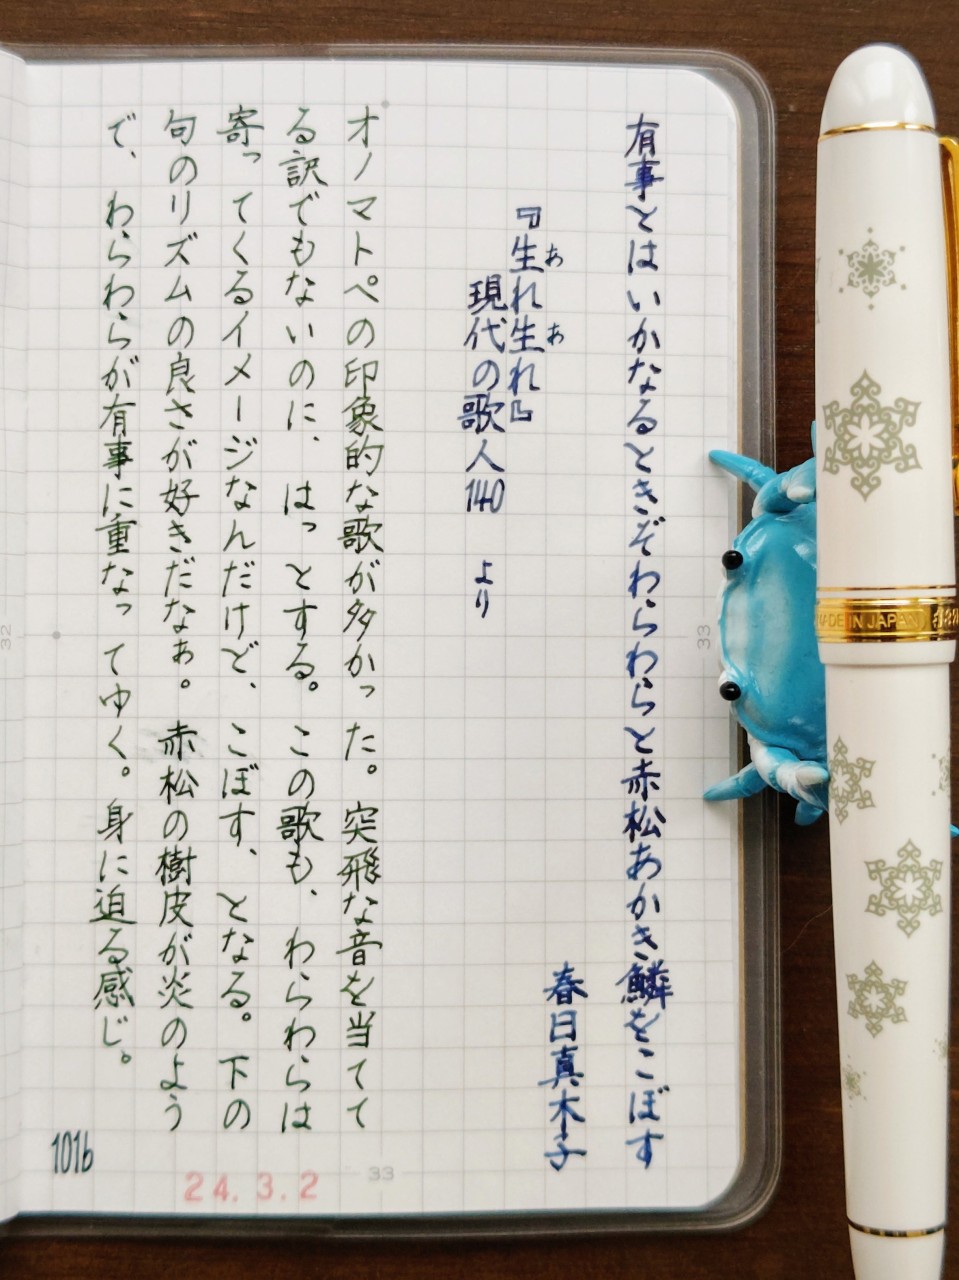 有事とはいかなるときぞわらわらと赤松あかき鱗をこぼす
春日真木子
『生れ生れ』
あ
あ
現代の歌人140 より
オノマトペの印象的な歌が多かった。突飛な音を当てて
る訳でもないのに、はっとする。この歌も、わらわらは
寄ってくるイメージなんだけど、こぼす、となる。下の
句のリズムの良さが好きだなぁ。赤松の樹皮が炎のよう
で、わらわらが有事に重なってゆく。身に迫る感じ。
1016
24.3.2
33
33
32
MADE IN JAPAN